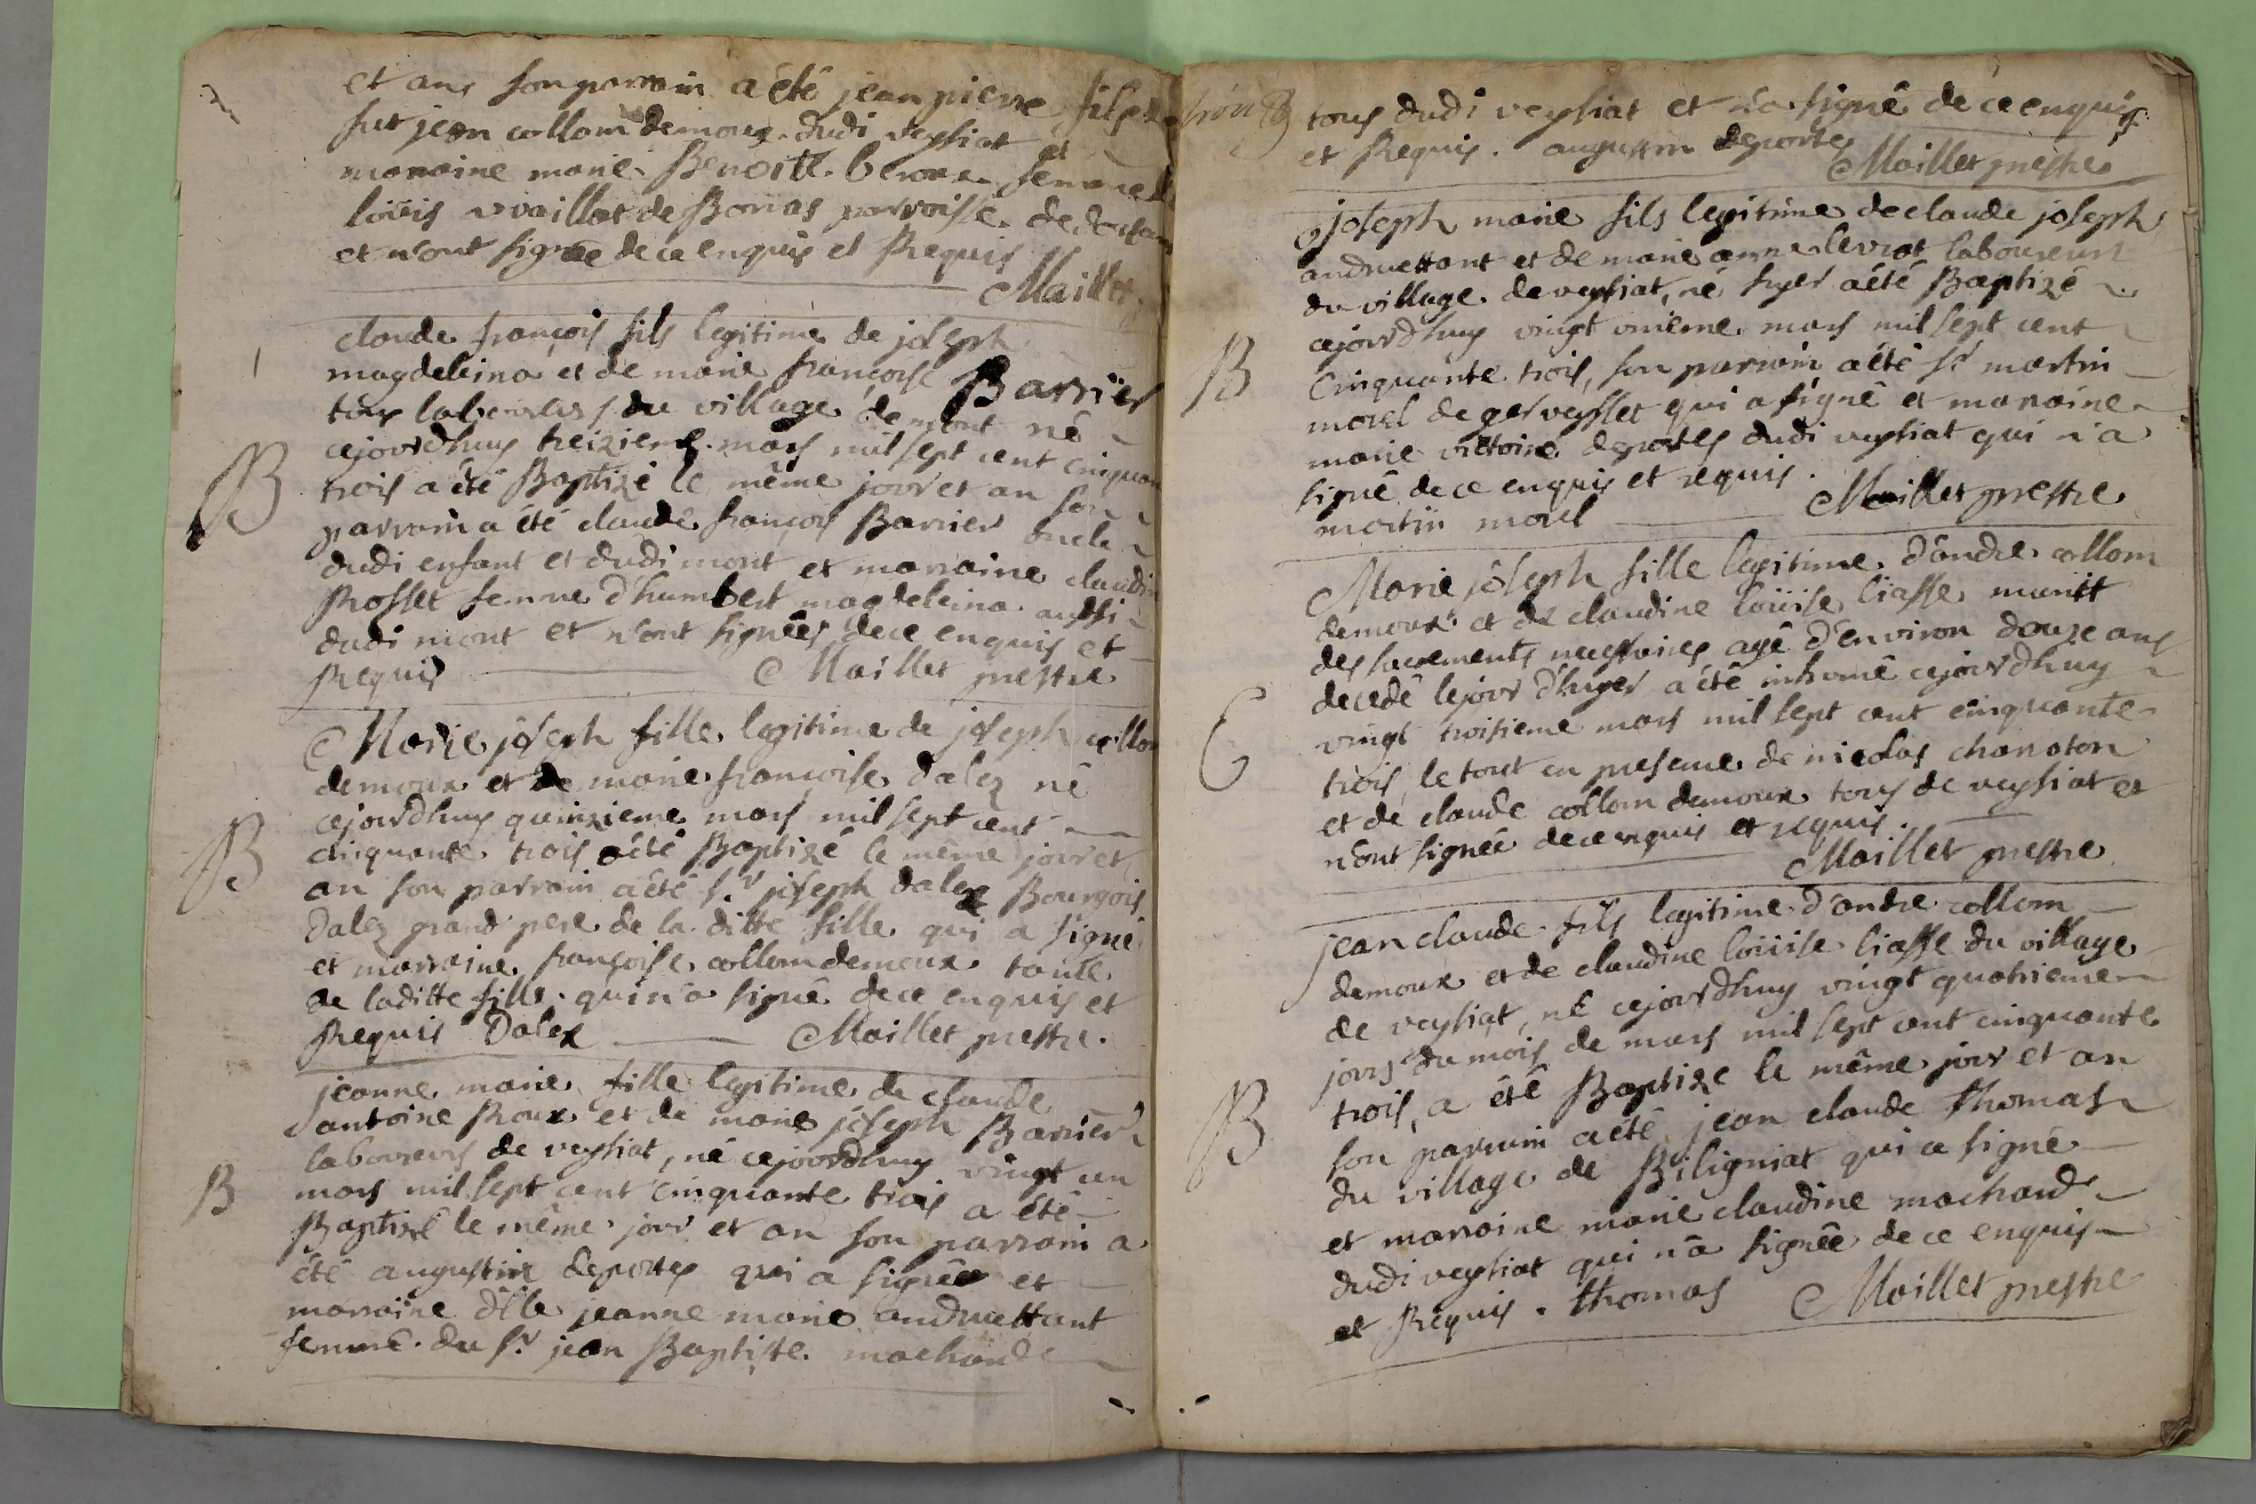 et an, son parrain a été jean pierre fils de
fut jean collom demoux dudi veysiat et
maraine marie Benoite beroux femme de
loüis vvaillat de Bonas parroisse de dortan
et n'ont signée de ce enquis et Requis
Maillet
claude françois fils legitime de joseph
magdeleina et de marie françoise Barrier
tous laboureurs du village de mont né
cejourdhuy treizieme mars mil sept cent cinquante
trois a été Baptizé le même jour et an son
parrain a été claude françois Barrier oncle
dudi enfant et dudi mont et marraine claudine
Rosset femme d'humbert magdeleina aussi
dudi mont et n'ont signées de ce enquis et
Requis Maillet prestre
B
Marie joseph fille legitime de joseph collom
demoux et de marie françoise dalez né
cejourdhuy quinzieme mars mil sept cent
cinquante trois a été Baptizé le même jour et
an son parrain a été sr joseph dalex Bourgois
Dalez grand pere de la ditte fille qui a signé
et marraine françoise collom demoux tante
de laditte fille qui n'a signé de ce enquis et
Requis Dalex Maillet prestre.
B
jeanne marie fille legitime de claude
antoine Roux et de marie joseph Barrier
laboureurs de veysiat, né cejourdhuy vingt un
mars mil sept cent cinquante trois a été
Baptizé le même jour et an son parrain a
été augustin deportes qui a signée et
marraine dlle jeanne marie andruettant
femme du sr jean Baptiste machard
B
tous dudi veysiat et n'a signé de ce enquis
et Requis. augustin deportes
Maillet prestre
joseph marie fils legitime de claude joseph
andruettant et de marie anne levrat laboureurs
du village de veysiat, né hyer a été Baptizé
cejourdhuy vingt unieme mars mil sept cent
cinquante trois, son parrain a été sr martin
morel de gerveysset qui a signé et maraine
marie victoire deportes dudi veysiat qui n'a
signé de ce enquis et requis.
martin morel Maillet prestre
B
Marie joseph fille legitime d'andre collom
demoux et de claudine loüise liasse munit
des sacrements necessaires, agé d'environ douze ans
decedé le jour d'hyer a été inhumé cejourdhuy
vingt troisieme mars mil sept cent cinquante
trois, le tout en presence de nicolas chanaton
et de claude collom demoux tous de veysiat et
n'ont signée de ce enquis et requis.
Maillet prestre
jean claude fils legitime d'andre collom
demoux et de claudine loüise liasse du village
de veysiat, né cejourdhuy vingt quatrieme
jours du mois de mars mil sept cent cinquante
trois, a été Baptize le même jour et an
son parrain a été jean claude thomas
du village de Biligniat qui a signé
et marraine marie claudine machard
dudi veysiat qui n'a signée de ce enquis
et Requis. thomas Maillet prestre
B